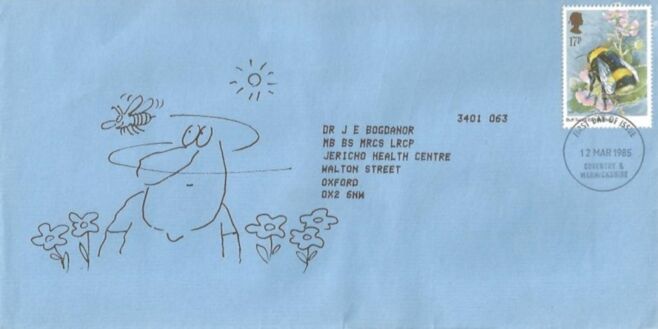 17P
3401 063
DR J E BOGDANOR
MB BS MRCS LRCP
JERICHO HEALTH CENTRE
WALTON STREET
OXFORD
OX2 6NW
FIRST DAY OF ISSUE
12 MAR 1985
COVENTRY &
WARWICKSHIRE